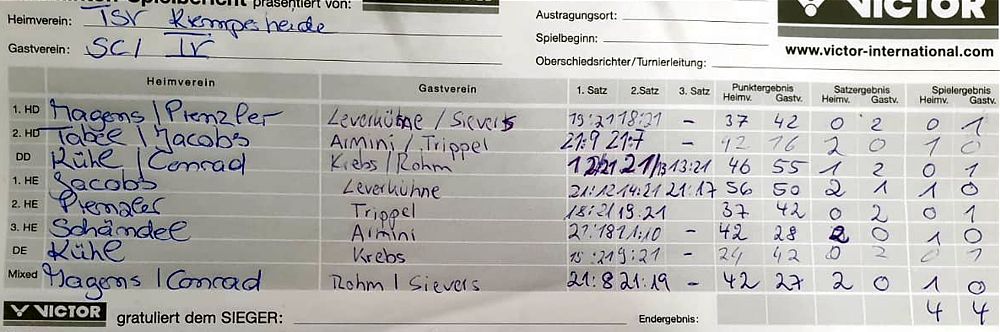 Spielbericht präsentiert von:
Heimverein: TSV Kempesheide
Gastverein: SCI IV
Austragungsort:
Spielbeginn:
Oberschiedsrichter/Turnierleitung:
VICTOR
www.victor-international.com
Heimverein Gastverein 1. Satz 2.Satz 3. Satz Punktergebnis Heimv. Gastv. Satzergebnis Heimv. Gastv. Spielergebnis Heimv. Gastv.
1. HD Hagens / Pienzler Leverkühne / Sievers 19:21 18:21 - 37 42 0 2 0 1
2. HD Tabel / Jacobs Armini / Trippel 21:9 21:7 - 42 16 2 0 1 0
DD Kühl / Conrad Krebs / Rohm 12/21 21/13 13:21 46 55 1 2 0 1
1. HE Jacobs Leverkühne 21:12 14:21 21:17 56 50 2 1 1 0
2. HE Pienzler Trippel 18:21 19:21 37 42 0 2 0 1
3. HE Schändel Armini 21:18 21:10 - 42 28 2 0 1 0
DE Kühl Krebs 15:21 9:21 - 24 42 0 2 0 1
Mixed Hagens / Conrad Rohm / Sievers 21:8 21:19 - 42 27 2 0 1 0
VICTOR gratuliert dem SIEGER: Endergebnis: 4 4